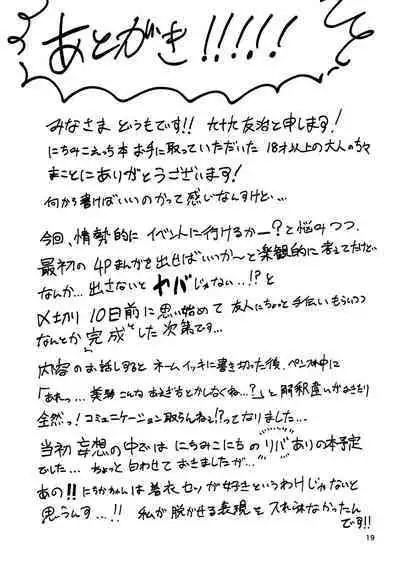 あとがき!!!!!
みなさま どうもです!! 九十九友治と申します!
にちみこえっち本お手に取っていただいた 18才以上の大人の方々
まことにありがとうございます!
何から書けばいいのかって感じなんすけど…
今回、情勢的に イベントに行けるかー?と悩みつつ、
最初の 4Pまんがを出せばいいか〜と楽観的に考えてたけど、
なんか… 出さないと ヤバじゃない…!?と
〆切り 10日前に思い始めて 友人にちょっと手伝いもらいつつ
なんとか"完成"した次第です…
内容のお話しすると ネームイッキに書き切った後、ペン入れ中に
「あれっ…美琴こんな あえぎとかしなくね…?」と解釈違いがよぎったり
全然っ!コミュニケーション取らんねぇ!?ってなりました…
当初 妄想の中では にちみこにちの リバありの本予定
でした… ちょっと 匂わせて おきましたが…
あの!!にちかちゃんは着衣セッが好きというわけじゃないと
思うんす…!! 私が脱がせる表現を入れられなかったん
です!!
19